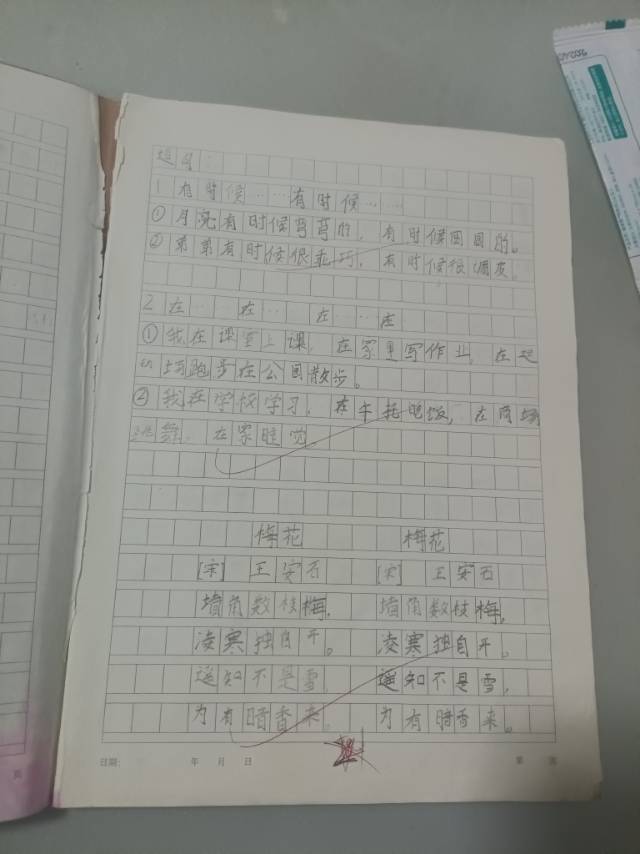 造句:
1 有时候……有时候……
①月亮有时候弯弯的,有时候圆圆的。
②弟弟有时候很乖巧,有时候很调皮。
2 在… 在… 在……在
①我在课室上课,在家里写作业,在运
动场跑步在公园散步。
②我在学校学习,在午托吃饭,在商场
跳舞,在家睡觉。
梅花 梅花
[宋] 王安石 [宋] 王安石
墙角数枝梅, 墙角数枝梅,
凌寒独自开。 凌寒独自开。
遥知不是雪, 遥知不是雪,
为有暗香来。 为有暗香来。
日期: 年 月 日 第 页
页